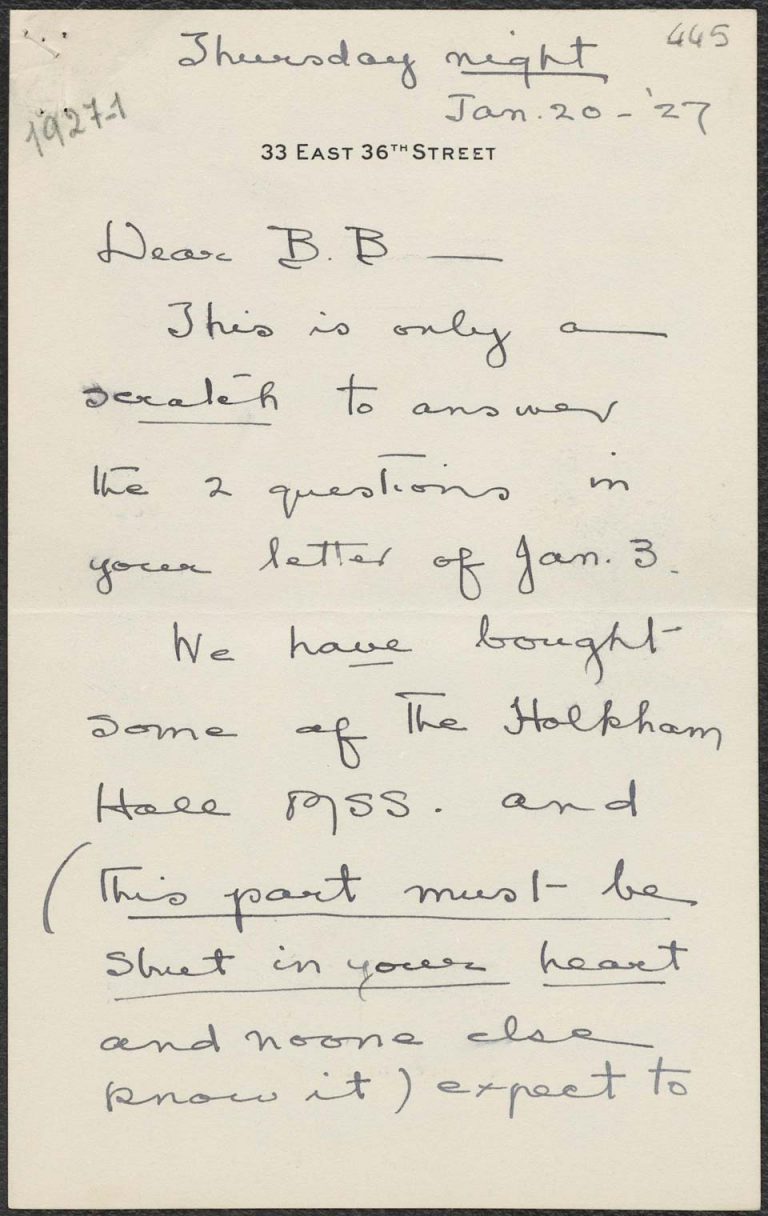 445
Thursday night
Jan. 20 - '27
1927-1
33 EAST 36TH STREET
Dear B.B —
This is only a
scratch to answer
the 2 questions in
your letter of Jan. 3.
We have bought
some of the Holkham
Hall MSS. and
(this part must be
shut in your heart
and noone else
know it) expect to